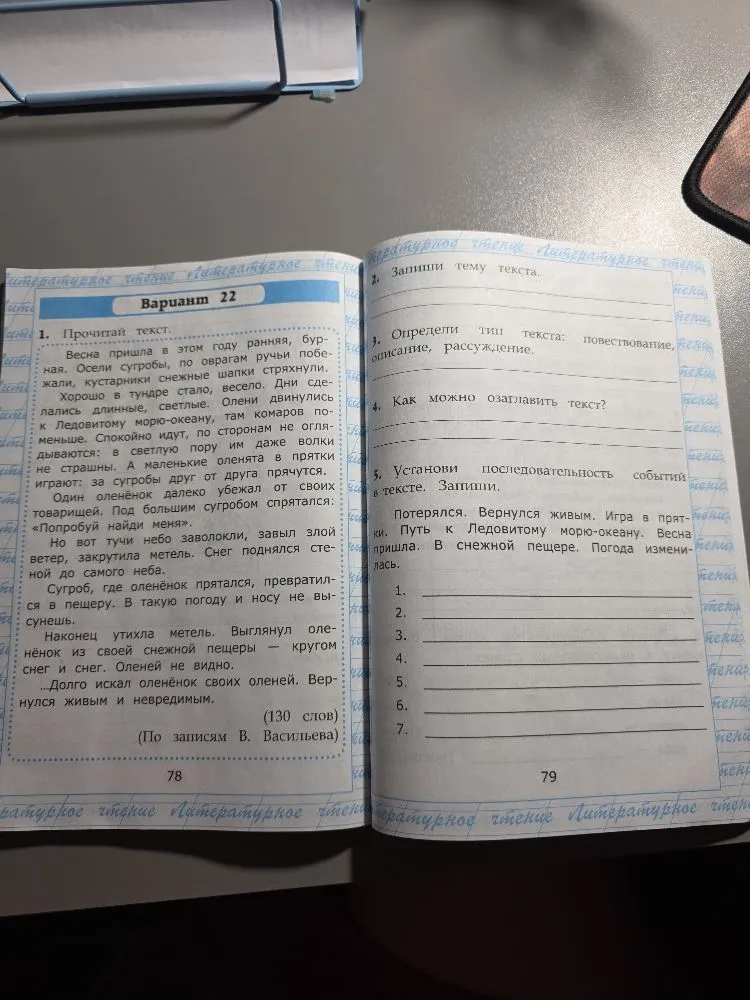 Литературное чтение Литературное чтение
Вариант 22
1. Прочитай текст.
Весна пришла в этом году ранняя, бур-
ная. Осели сугробы, по оврагам ручьи побе-
жали, кустарники снежные шапки стряхнули.
Хорошо в тундре стало, весело. Дни сде-
лались длинные, светлые. Олени двинулись
к Ледовитому морю-океану, там комаров по-
меньше. Спокойно идут, по сторонам не огля-
дываются: в светлую пору им даже волки
не страшны. А маленькие оленята в прятки
играют: за сугробы друг от друга прячутся.
Один оленёнок далеко убежал от своих
товарищей. Под большим сугробом спрятался:
«Попробуй найди меня».
Но вот тучи небо заволокли, завыл злой
ветер, закрутила метель. Снег поднялся сте-
ной до самого неба.
Сугроб, где оленёнок прятался, превратил-
ся в пещеру. В такую погоду и носу не вы-
сунешь.
Наконец утихла метель. Выглянул оле-
нёнок из своей снежной пещеры — кругом
снег и снег. Оленей не видно.
...Долго искал оленёнок своих оленей. Вер-
нулся живым и невредимым.
(130 слов)
(По записям В. Васильева)
78
ературное чтение Литературное чтение
литературное чтение Литературное чтение
2. Запиши тему текста.
3. Определи тип текста: повествование,
описание, рассуждение.
4. Как можно озаглавить текст?
5. Установи последовательность событий
в тексте. Запиши.
Потерялся. Вернулся живым. Игра в прят-
ки. Путь к Ледовитому морю-океану. Весна
пришла. В снежной пещере. Погода измени-
лась.
1.
2.
3.
4.
5.
6.
7.
79
ературное чтение Литературное чтение